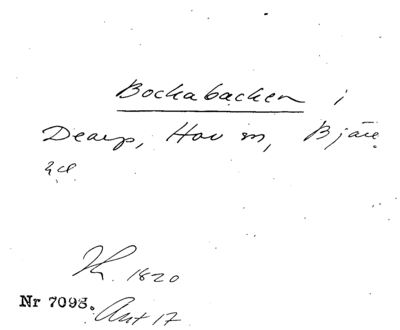 Bockabacken i
Dearp, Hov sn, Bjäre
hd
Th. 1820
Nr 7098. Ant 17